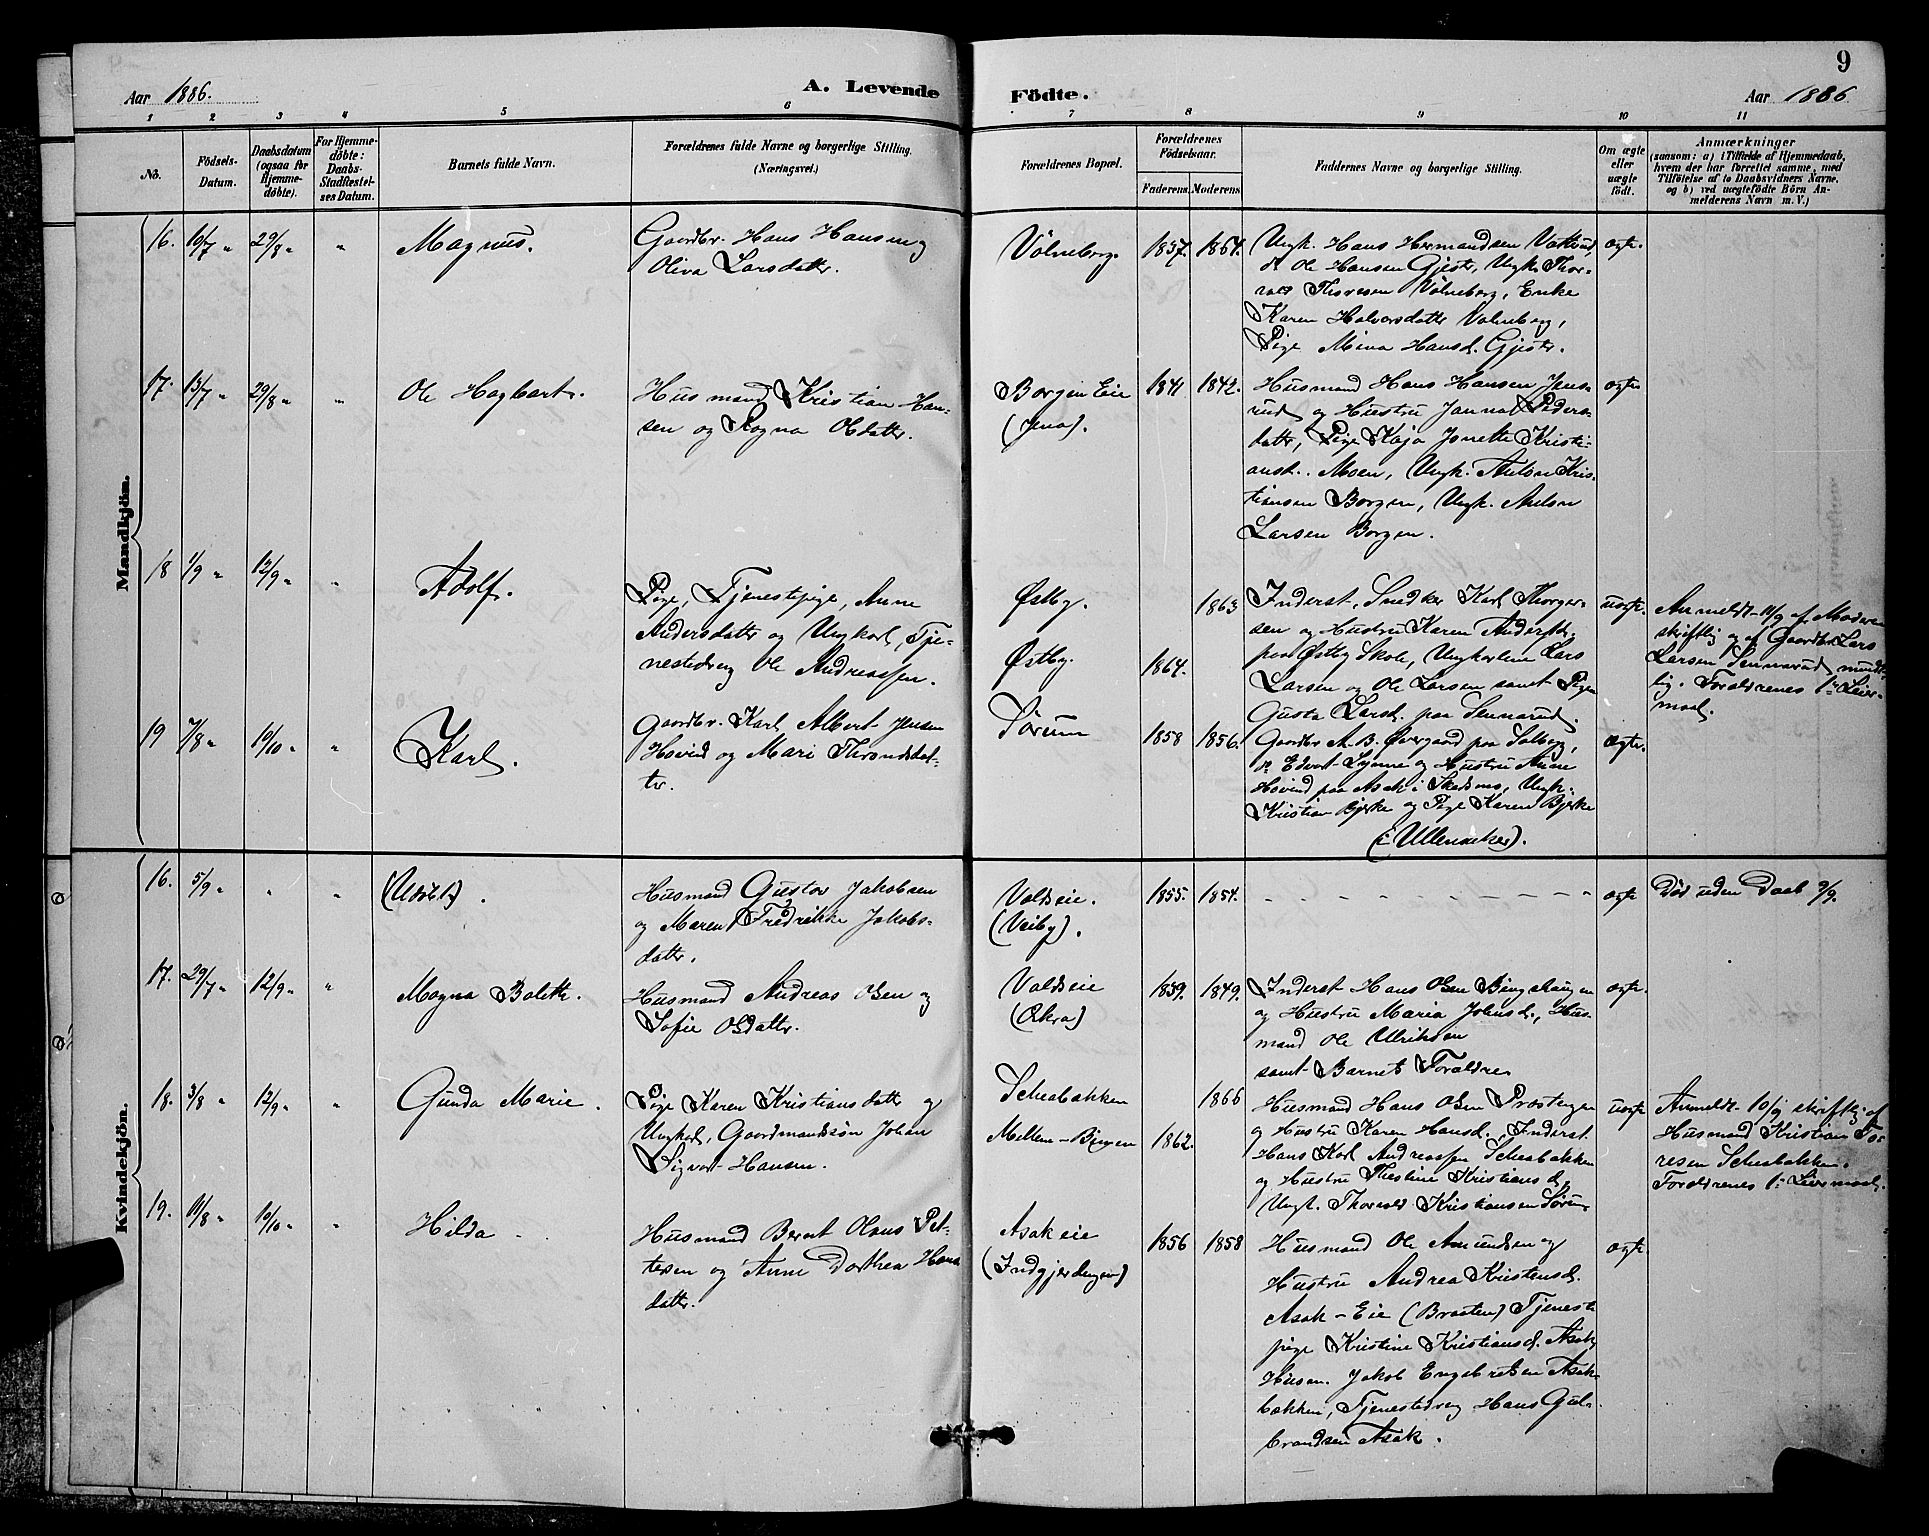 9
Aar 1886.
A. Levende
Födte.
Aar 1886
1 2 3 4 5 6 7 8 9 10 11
No.
Födsels-
Datum.
Daabsdatum
(ogsaa for
Hjemme-
døbte).
For Hjemme-
døbte:
Daabs-
Stadfæstel-
ses Datum.
Barnets fulde Navn.
Forældrenes fulde Navne og borgerlige Stilling.
(Næringsvei.)
Forældrenes Bopæl.
Forældrenes
Födselsaar.
Faderens.
Moderens.
Faddernes Navne og borgerlige Stilling.
Om ægte
eller
uægte
født.
Anmærkninger
(saasom: a) i Tilfælde af Hjemmedaab,
hvem der har forrettet samme, med
Tilföielse af to Daabsvidners Navne.
og b) ved uægtefödte Börn An-
melderens Navn m. V.)
Mandkjön.
16. 16/7 " 29/8 " "
Magnus.
Gaardbr. Hans Hansen og
Oliva Larsdatter.
Volneberg. 1837. 1864.
Ungk. Hans Hermandsen
do Ole Hansen Gjester, Ungk. Thor-
vald Thoresen Volneberg, Enke
Karen Halvorsdatter Volneberg,
Pige Mina Hansd. Gjester.
ægte.
17. 13/7 " 29/8 " "
Ole Hagbart.
Husmand Kristian Han-
sen og Ragna Olsdatter.
Borgen Eie
1841 1842.
Husmand Hans Hansen Jens-
rud og Hustru Janna Peders-
datter, Pige Kaja Jonette Kristi-
ansd. Moen, Ungk. Anton Kris-
tiansen Borgen, Ungk. Anton
Larsen Borgen.
ægte
18 1/9 " 12/9 " "
Adolf.
Pige, Tjenestepige, Anne
Andersdatter og Ungkarl, Tje-
nestedreng Ole Andreassen.
Østby. 1863
Østby. 1864.
Inderst, Snedker Karl Thorger-
sen og Hustru Karen Andersd.
paa Østby Skole, Ungkarlene Lars
Larsen og Ole Larsen samt Pigen
Gusta Larsd. paa Sennerud.
uægte.
Anmeldt 11/9 af Moderen
skriftlig og af Gaardbr. Lars
Larsen Sennerud mundt-
lig. Forældrenes 1ste Leier-
maal.
19 7/8 " 10/10 " "
Karl.
Gaardbr. Karl Albert Jensen
Hovind og Mari Throndsdat-
ter.
Sørum 1858 1856.
Gaardbr A. B. Overgaard paa Solberg,
do Edvart Lynne og Hustru Anne
Hovind paa Asak i Skedsmo, Ungk.
Kristian Bjerke og Pige Karen Bjerke
(i Ullensaker).
ægte.
Kvindekjön.
16. 5/9 " " "
(Udøbt).
Husmand Gustav Jakobsen
og Maren Fredrikke Jakobs-
datter.
Valdseie.
(Veiby).
1855. 1854.
ægte
Død uden Daab 9/9.
17. 29/7 " 12/9 " "
Magna Bolette.
Husmand Andreas Olsen og
Sofie Olsdatter.
Valdseie
(Økra)
1839. 1849.
Inderst Hans Olsen Bingshaugen
og Hustru Maria Johnsd., Hus-
mand Ole Ulriksen
samt Barnets Forældre
ægte.
18. 3/8 " 12/9 " "
Gunda Marie.
Pige Karen Kristiansdatter og
Ungkarl, Gaardmandssøn Johan
Sigvart Hansen.
Scheabakken 1866
Mellem-Bjugen 1862.
Husmand Hans Olsen Præstengen
og Hustru Karen Hansd., Inderst
Hans Karl Andreassen Scheabakken
og Hustru Thestine Kristiansd.
Ungk. Thorvald Kristiansen Sørum
uægte
Anmeldt 10/9 skriftlig af
Husmand Kristian To-
resen Scheabakken.
Forældrenes 1ste Leiermaal.
19. 11/8 " 10/10 " "
Hilda
Husmand Bernt Olaus Pet-
tersen og Anne Dorthea Hans
datter.
Asak eie
(Indgjerdingen)
1856 1858
Husmand Ole Amundsen og
Hustru Andrea Kristensd.
Asak-Eie (Braaten) Tjeneste
pige Kristine Kristiansd. Asak
Husen. Jakob Engebretsen Asak-
bækken, Tjenestedreng Hans Gul-
brandsen Asak.
ægte